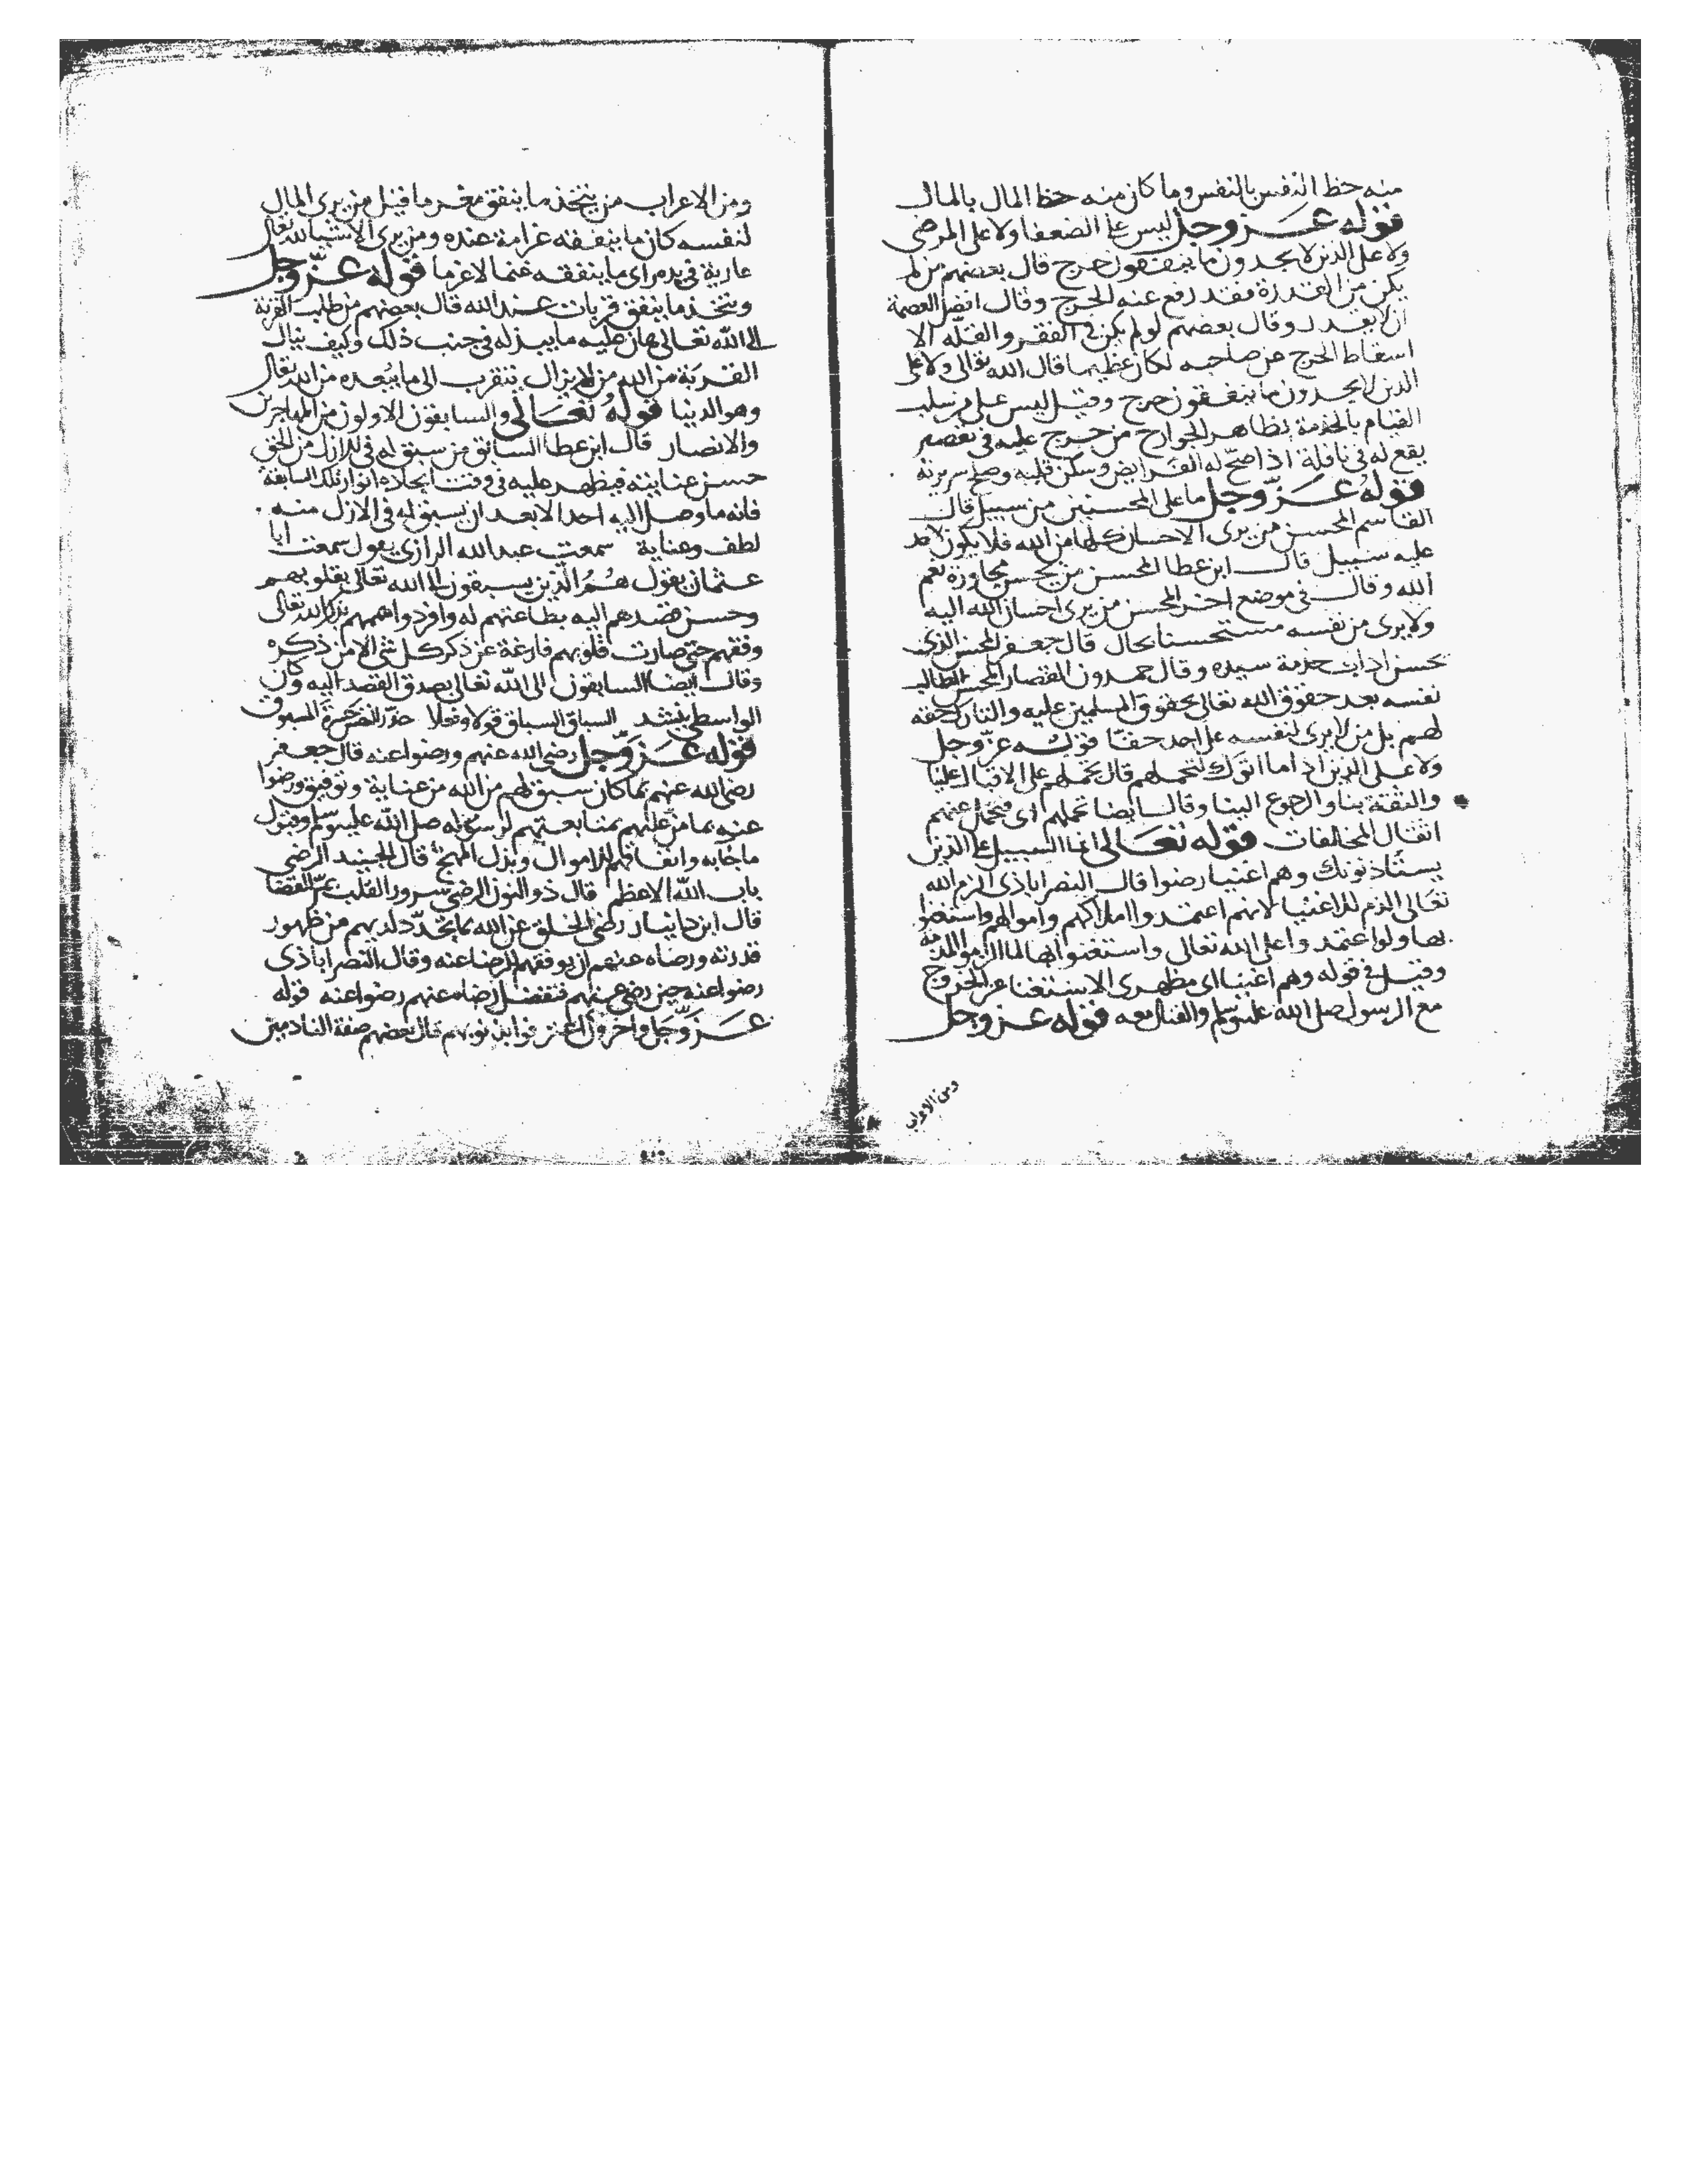 منه حظ النفس بالنفس وما كان منه حظ المال بالمال
قوله عز وجل ليس على الضعفا ولا على المرضى
ولا على الذين لا يجدون ما ينفقون حرج قال بعضهم من لم
يكن من القدرة فقد رفع عنه الحرج وقال افضل العصمة
ان لا يقدر وقال بعضهم لو لم يكن في الفقر والقلّة الا
اسقاط الحرج عن صاحبه لكان عظيما قال الله تعالى ولا على
الذين لا يجدون ما ينفقون حرج وقيل ليس على من سلب
القيام بالخدمة بظاهر الجوارح من حرج عليه في تقصير
يقع له في نافلة اذا صحّ له الفرايض وسكن قلبه وصلح سريرته
قوله عزّ وجل ما على المحسنين من سبيل قال
القاسم المحسن من يرى الاحسان كلها من الله فلا يكون لاحد
عليه سبيل قال ابن عطا المحسن من يحسن مجاورة نعم
الله وقال في موضع اخر المحسن من يرى احسان الله اليه
ولا يرى من نفسه مستحسنا بحال قال جعفر المحسن الذي
يحسن اداب خدمة سيده وقال حمدون القصار المحسن المطالب
نفسه بعد حقوق الله تعالى بحقوق المسلمين عليه والتارك حقه
لهم بل من لا يرى لنفسه على احد حقّا قوله عزّ وجل
ولا على الذين اذا ما اتوك لتحملهم قال يحملهم على الاقبال علينا
والثقة بنا والرجوع الينا وقال ايضا تحملهم اي فتحمل عنهم
اثقال المخالفات قوله تعالى انما السبيل على الذين
يستاذنونك وهم اغنيا رضوا قال النصراباذى الزم الله
تعالى الذم للاغنيا لانهم اعتمدوا املاكهم واموالهم واستغنوا
بها ولو اعتمدوا على الله تعالى واستغنوا به لما الزموا المذمة
وقيل في قوله وهم اغنيا اى مظهرى الاستغنا عن الخروج
مع الرسول صلى الله عليه وسلم والقتال معه قوله عز وجل
ومن الاعراب
ومن الاعراب من يتخذ ما ينفق مغرما قيل من يرى المال
لنفسه كان ما ينفقه غرامة عنده ومن يرى الاشيا لله تعالى
عارية في يده راى ما ينفقه غنما لا غرما قوله عزّ وجل
ويتخذ ما ينفق قربات عند الله قال بعضهم من طلب القربة
الى الله تعالى هان عليه ما يبذله في جنب ذلك وكيف ينال
القربة من الله من لا يزال يتقرب الى ما يبعده من الله تعالى
وهو الدنيا قوله تعالى والسابقون الاولون من المهاجرين
والانصار قال ابن عطا السابق من سبق له في الازل من الحق
حسن عناية فيظهر عليه في وقت ايجاده انوار تلك السابقة
فانه ما وصل اليه احد الا بعد ان سبق له في الازل منه
لطف وعناية سمعت عبد الله الرازي يقول سمعت ابا
عثمان يقول هُمُ الّذين يسبقون الى الله تعالى بقلوبهم
وحسن قصدهم اليه بطاعتهم له وافردوا هممهم بذكر الله تعالى
وفقهم حتى صارت قلوبهم فارغة عن ذكر كل شى الا من ذكره
وقال ايضا السابقون الى الله تعالى بصدق القصد اليه وكان
الواسطي ينشد السباق السباق قولا وفعلا حذّر النفس حسرة المسبوق
قوله عز وّجل رضي الله عنهم ورضوا عنه قال جعفر
رضي الله عنهم بما كان سبق لهم من الله من عناية وتوفيق ورضوا
عنه بما من عليهم بمتابعتهم لرسوله صلى الله عليه وسلم وقبول
ما جاَبه وانفاقهم الاموال وبذل المهج قال الجنيد الرضى
باب الله الاعظم قال ذو النون الرضى سرور القلب بمرّ القضا
قال ابن دانيار رضى الخلق عن الله بما يتجدّد لديهم من ظهور
قدرته ورضاه عنهم ان يوفقهم للرضا عنه وقال النصراباذى
رضوا عنه حين رضى عنهم فبفضل رضاه عنهم رضوا عنه قوله
عز وّجل واخرون اعترفوا بذنوبهم قال بعضهم صفة النادمين